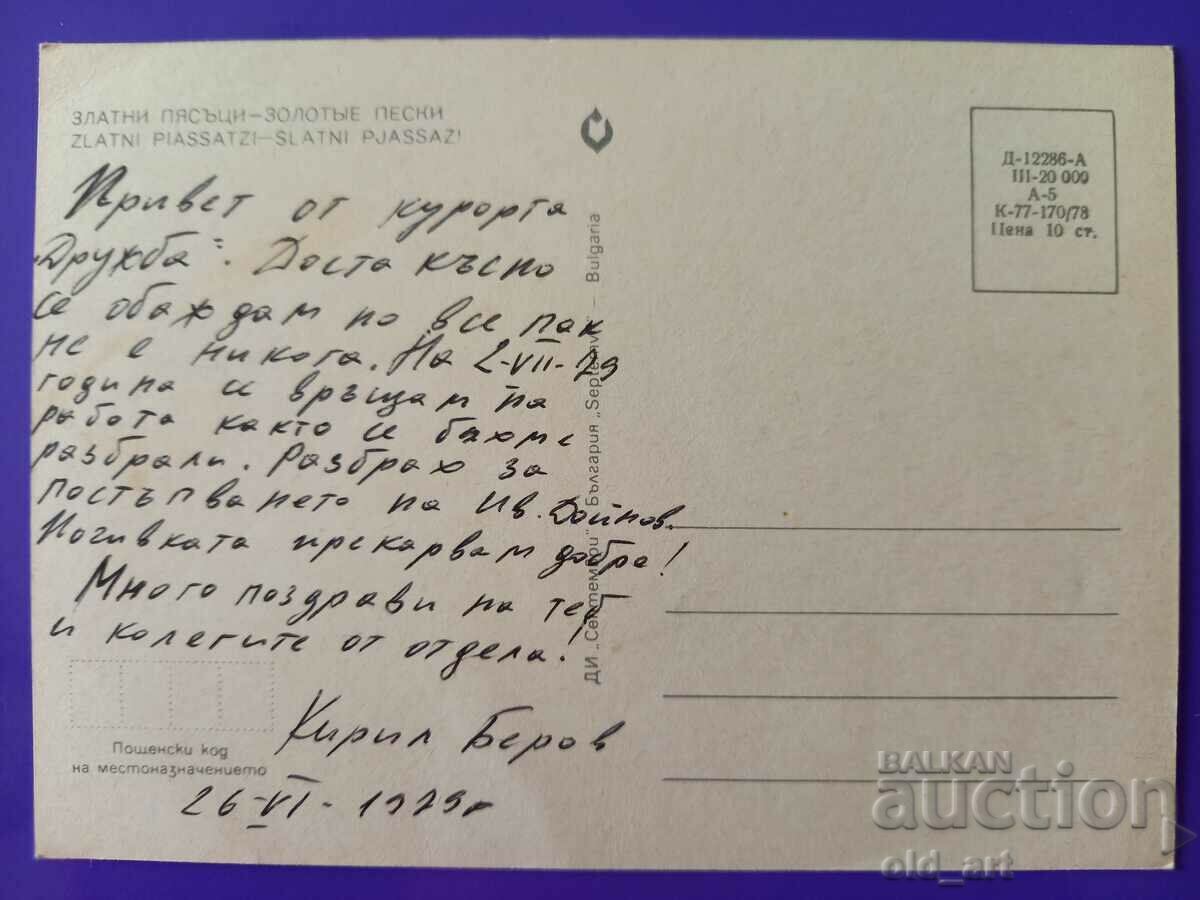 ЗЛАТНИ ПЯСЪЦИ—ЗОЛОТЫЕ ПЕСКИ
ZLATNI PIASSATZI—SLATNI PJASSAZI
Привет от курорта
„Дружба". Доста късно
се обаждам но все пак
не е никога. На 2-VII-79
година се връщам на
работа както се бяхме
разбрали. Разбрах за
постъпването на Ив. Дойнов.
Почивката прекарвам добре!
Много поздрави на теб
и колегите от отдела!
Кирил Беров
26-VI-1979г
Пощенски код
на местоназначението
ДИ „Септември" — България „Septemvri" — Bulgaria
Д-12286-А
III-20 000
А-5
К-77-170/78
Цена 10 ст.
BALKAN
auction
old_art